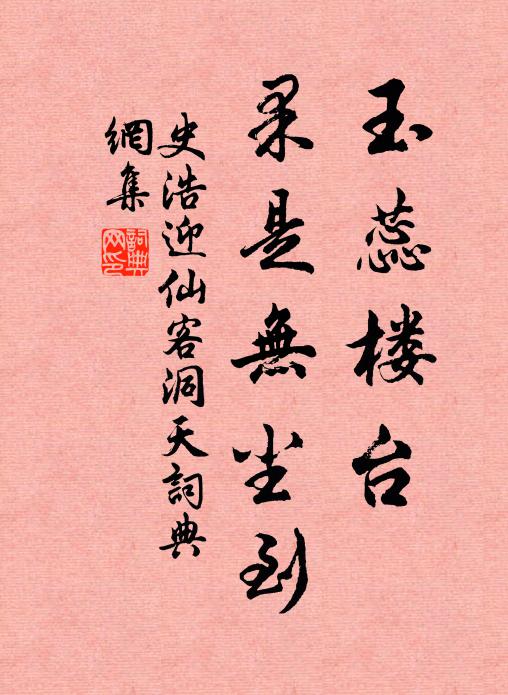 玉蕊楼台
果是無尘到
史浩迎仙客洞天詞典
網集
詞典
网印